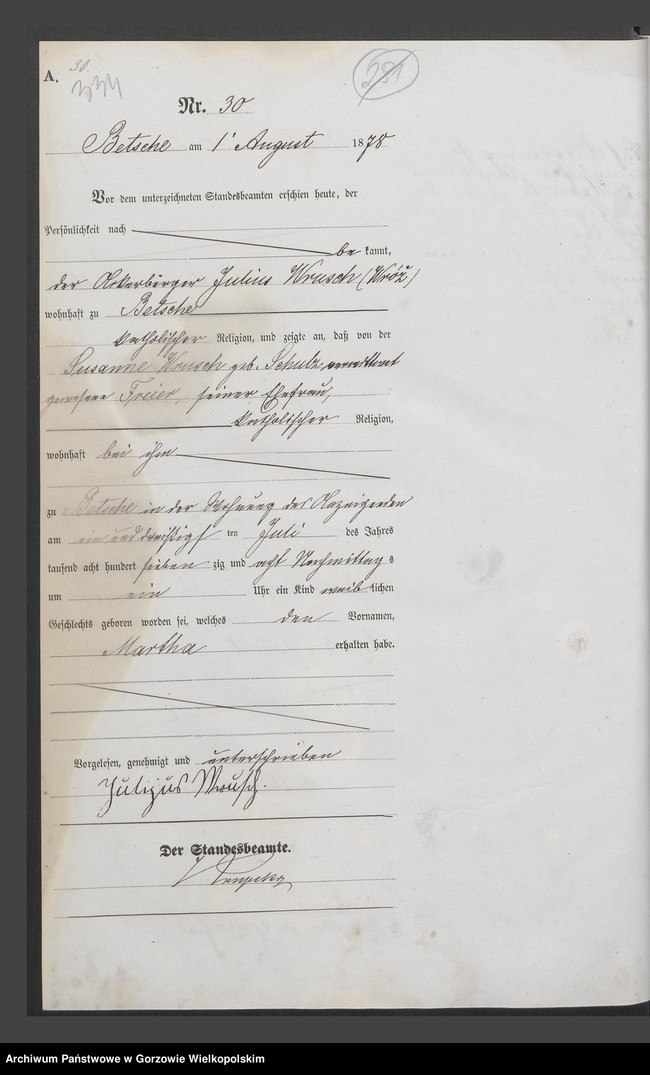 30.
A.
334
291
Nr. 30
Betsche am 1t August 1878
Vor dem unterzeichneten Standesbeamten erschien heute, der
Persönlichkeit nach
be kannt,
der Ackerbürger Julius Wrusch (Wróż)
wohnhaft zu Betsche
katholischer Religion, und zeigte an, daß von der
Susanne Wrusch geb. Schulz, verwittwet
gewesene Freier, seiner Ehefrau,
katholischer Religion,
wohnhaft bei ihm
zu Betsche in der Wohnung des Anzeigenden
am ein und dreißigs ten Juli des Jahres
tausend acht hundert sieben zig und acht Nachmittag s
um ein Uhr ein Kind weib lichen
Geschlechts geboren worden sei, welches den Vornamen,
Martha erhalten habe.
Vorgelesen, genehmigt und unterschrieben
Julijus Wrusch.
Der Standesbeamte.
Archiwum Państwowe w Gorzowie Wielkopolskim